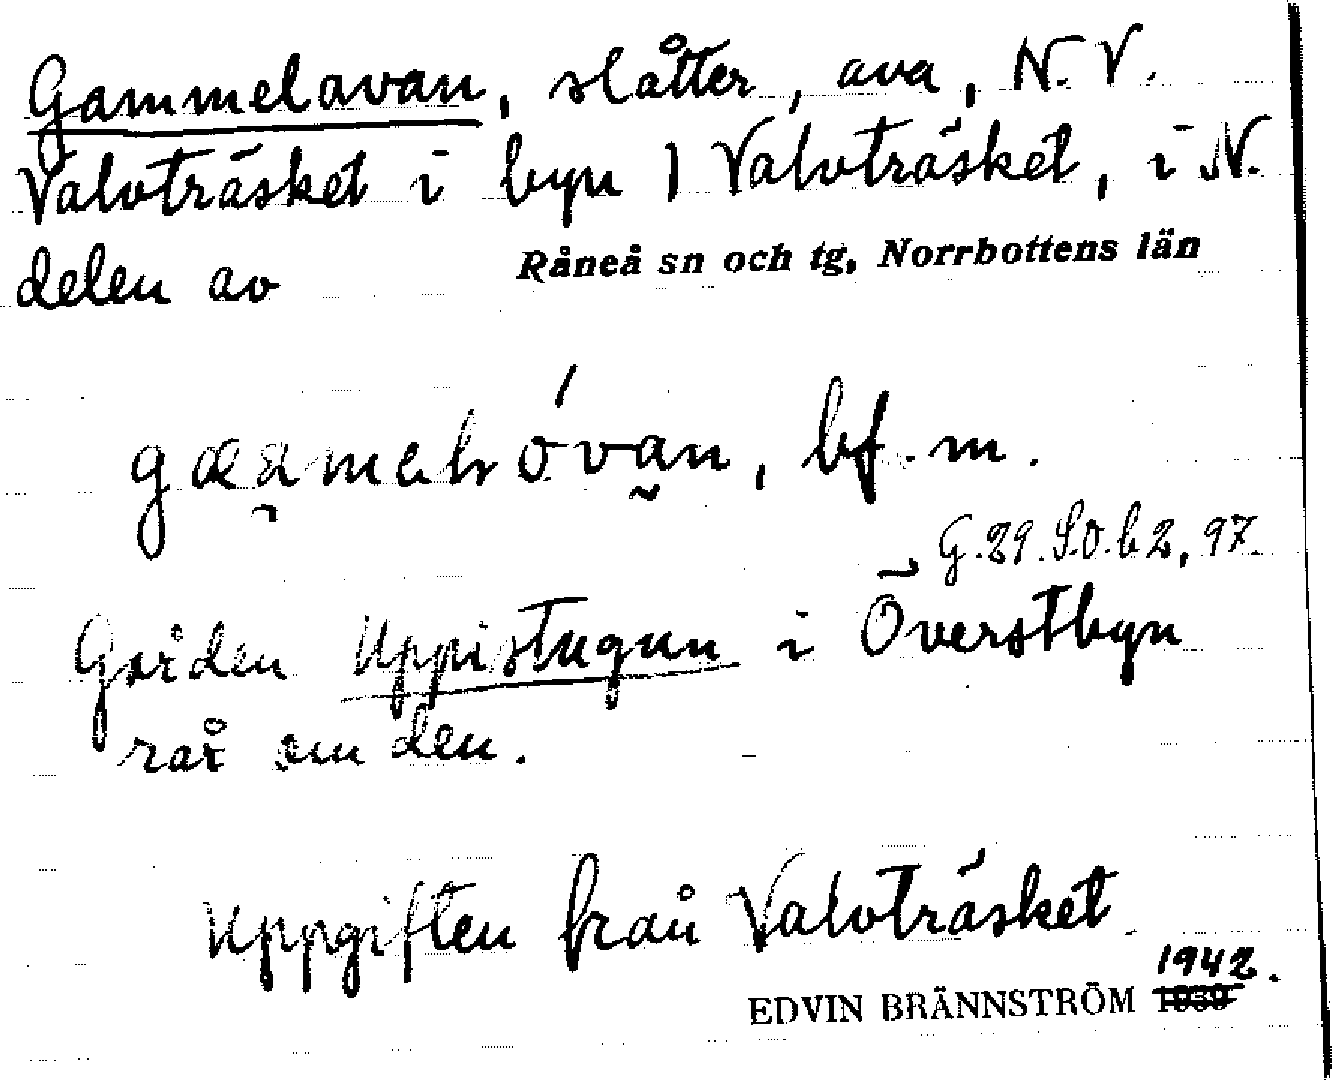 Gammelavan, slåtter, ava, N.V.
Valvträsket i byn 1 Valvträsket, i N.
delen av Råneå sn och tg, Norrbottens län
bf. m.
G.29. S.O. b2, 97.
Gården Uppistugun i Överstbyn
rår om den.
Uppgiften från Valvträsket
1942.
EDVIN BRÄNNSTRÖM 1939